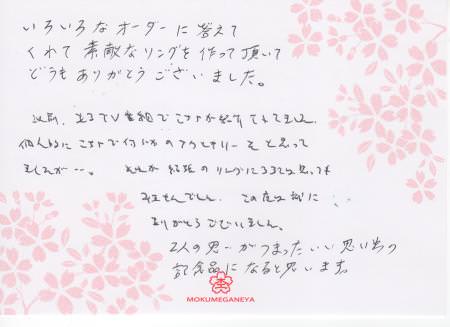 いろいろなオーダーに答えて
くれて素敵なリングを作って頂いて
どうもありがとうございました。
以前、あるTV番組でこちらが紹介されてました。
個人的にこちらで何かのアクセサリーをと思って
ましたが…。それが結婚のリングになるとは思っても
いませんでした。この度は誠に
ありがとうございました。
2人の思いがつまったいい思い出の
記念品になると思います。
MOKUMEGANEYA